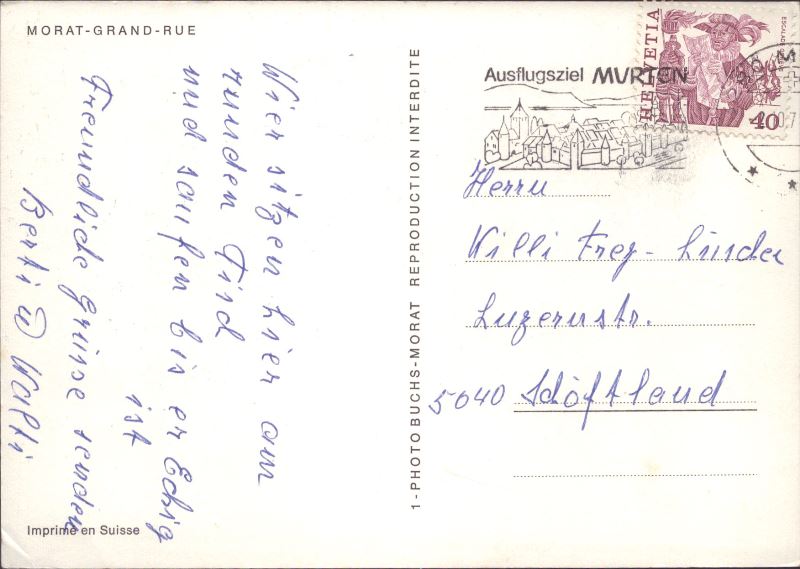 MORAT-GRAND-RUE
Wier sitzen hier am
runden Tisch
und saufen bis er Eckig
ist
Freundliche Grüsse senden
Berti u Walti
Imprimé en Suisse
1-PHOTO BUCHS-MORAT REPRODUCTION INTERDITE
Ausflugsziel MURTEN
HELVETIA
ESCALADE
40
Herrn
Willi Frey-Linder
Luzernstr.
5040 Schöftland